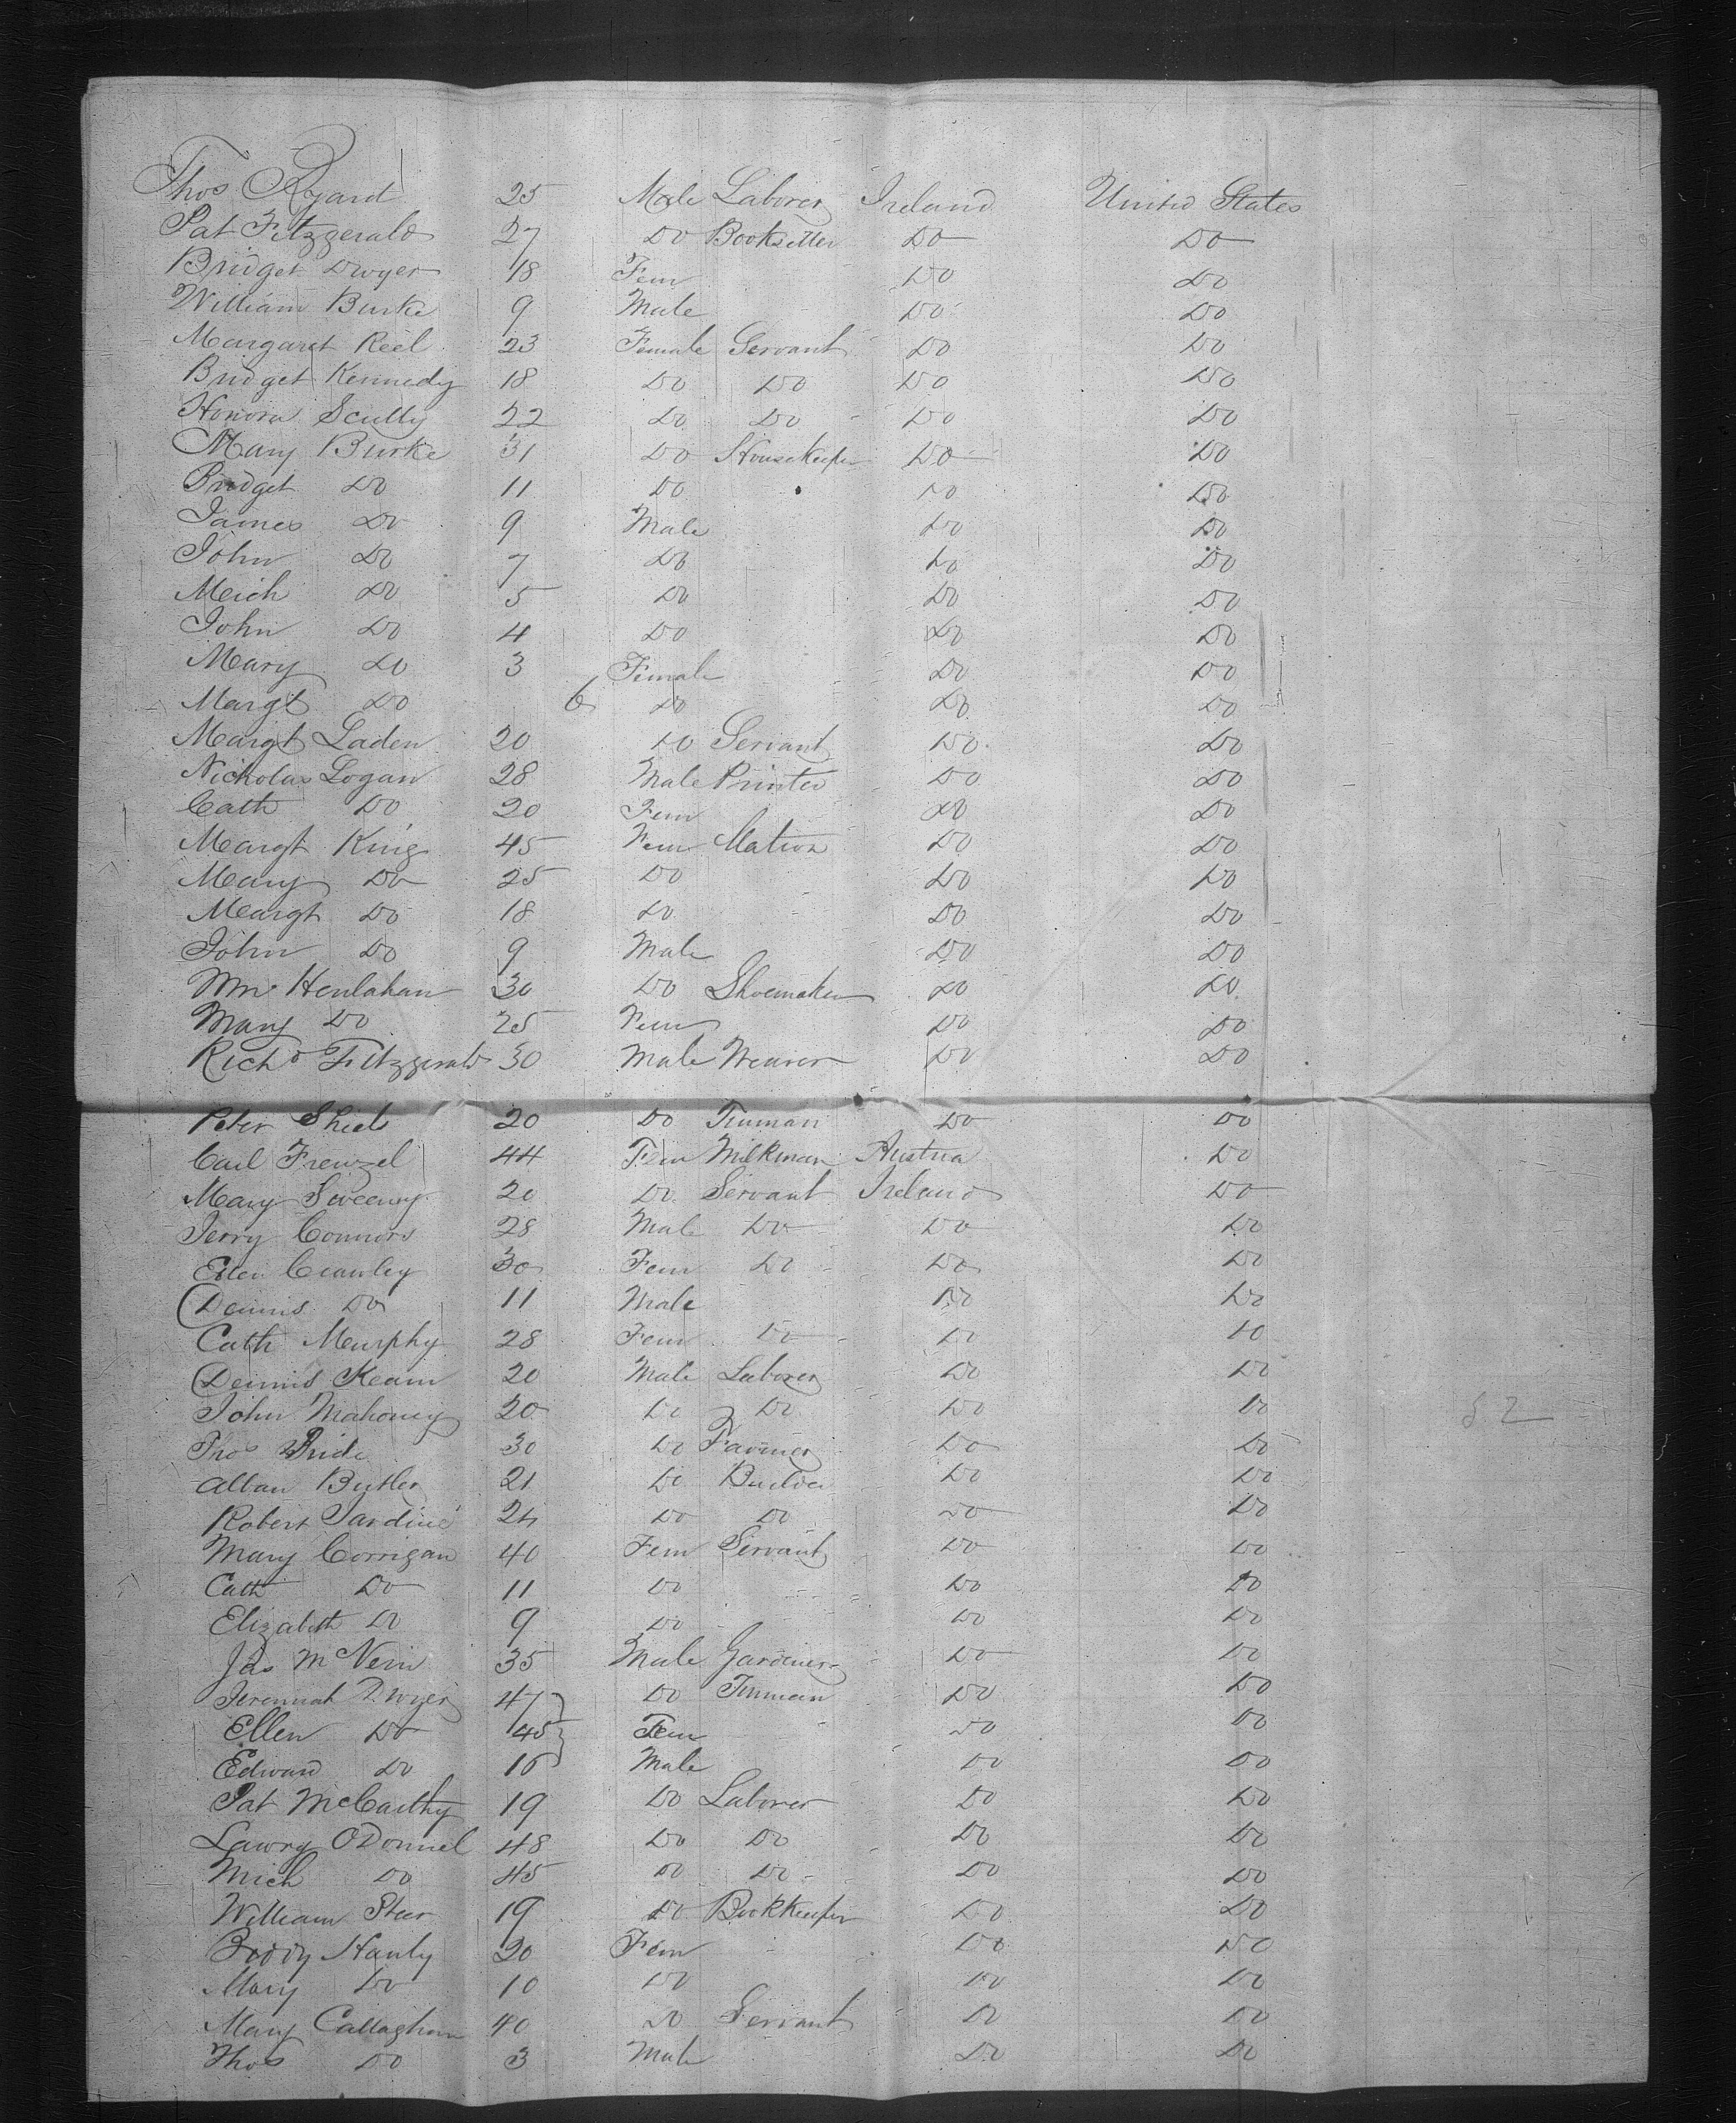 Thos Ryard 25 Male Laborer Ireland United States
Pat Fitzgerald 27 Do Bookseller Do Do
Bridget Dwyer 18 Fem Do Do
William Burke 9 Male Do Do
Margaret Reel 23 Female Servant Do Do
Bridget Kennedy 18 Do Do Do Do
Honora Scully 22 Do Do Do Do
Mary Burke 31 Do Housekeeper Do Do
Bridget Do 11 Do Do Do
James Do 9 Male Do Do
John Do 7 Do Do Do
Meich Do 5 Do Do Do
John Do 4 Do Do Do
Mary Do 3 Female Do Do
Margt Do 6 Do Do Do
Margt Laden 20 Do Servant Do Do
Nicholas Logan 28 Male Printer Do Do
Cath Do 20 Fem Do Do
Margt King 45 Fem Matron Do Do
Mary Do 25 Do Do Do
Margt Do 18 Do Do Do
John Do 9 Male Do Do
Wm Henlahan 30 Do Shoemaker Do Do
Mary Do 25 Fem Do Do
Richd Fitzgerald 30 Male Weaver Do Do
Peter Shiels 20 Do Tinman Do Do
Carl Frenzel 44 Fem Milkman Austria Do
Mary Sweeny 20 Do Servant Ireland Do
Jerry Connors 28 Male Do Do Do
Ellen Crowley 30 Fem Do Do Do
Dennis Do 11 Male Do Do
Cath Murphy 28 Fem Do Do Do
Dennis Keam 20 Male Laborer Do Do
John Mahoney 20 Do Do Do Do
Thos Pride 30 Do Farmer Do Do
Alban Butler 21 Do Builder Do Do
Robert Jardine 24 Do Do Do Do
Mary Corrigan 40 Fem Servant Do Do
Cath Do 11 Do Do Do
Elizabeth Do 9 Do Do Do
Jas McVein 35 Male Gardener Do Do
Jeremiah Dwyer 47 Do Tinman Do Do
Ellen Do 45 Fem Do Do
Edward Do 16 Male Do Do
Pat McCarthy 19 Do Laborer Do Do
Lawry ODonnel 48 Do Do Do Do
Mich Do 45 Do Do Do Do
William Steer 19 Do Bookkeeper Do Do
Biddy Hanly 20 Fem Do Do
Mary Do 10 Do Do Do
Mary Callaghan 40 Do Servant Do Do
Thos Do 3 Male Do Do